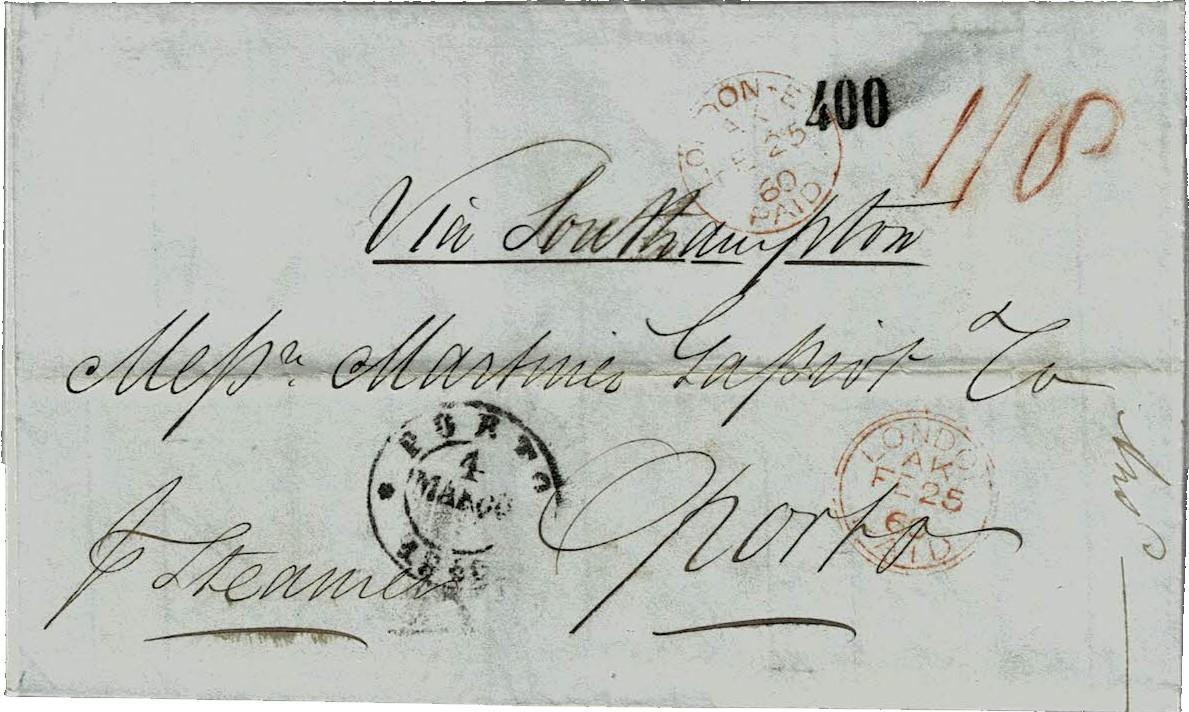 LONDON-E
AK
FE 25
60
PAID
400
1/8
Via Southampton
Messrs. Martinez Gassiot & Co
Oporto
PORTO
4
MARCO
1860
LONDON
AK
FE 25
60
PAID
p Steamer